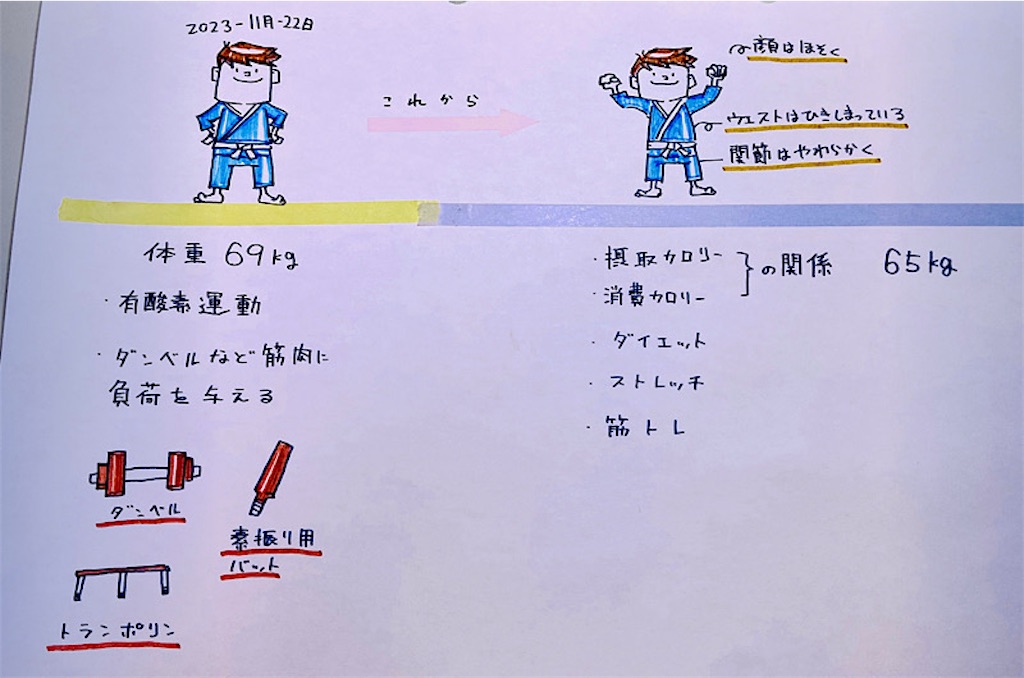 2023-11月-22日
これから
顔はほそく
ウエストはひきしまっている
関節はやわらかく
体重 69kg
・有酸素運動
・ダンベルなど筋肉に
負荷を与える
ダンベル
素振り用
バット
トランポリン
・摂取カロリー
・消費カロリー
}の関係 65kg
・ダイエット
・ストレッチ
・筋トレ